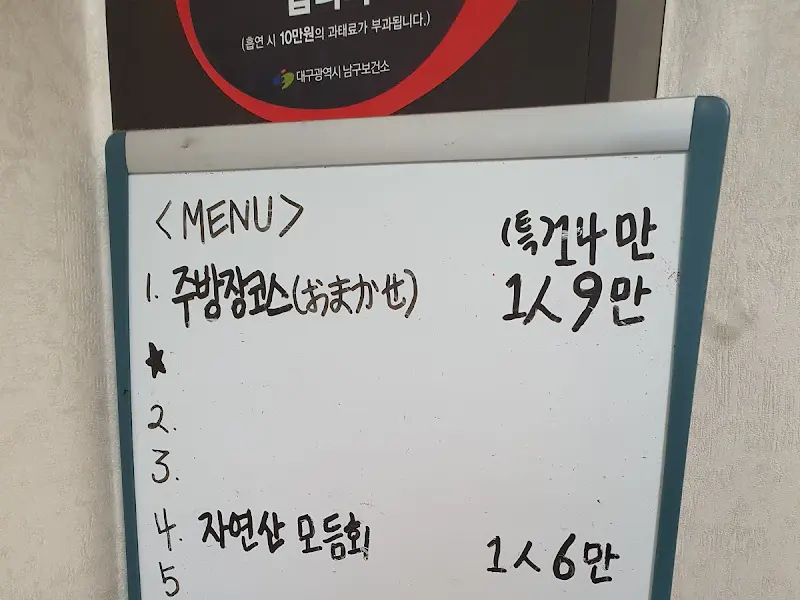 (흡연 시 10만원의 과태료가 부과됩니다.)
대구광역시 남구보건소
<MENU>
1. 주방장코스(おまかせ) 1人 9만
★
2.
3.
4. 자연산 모듬회 1人 6만
5